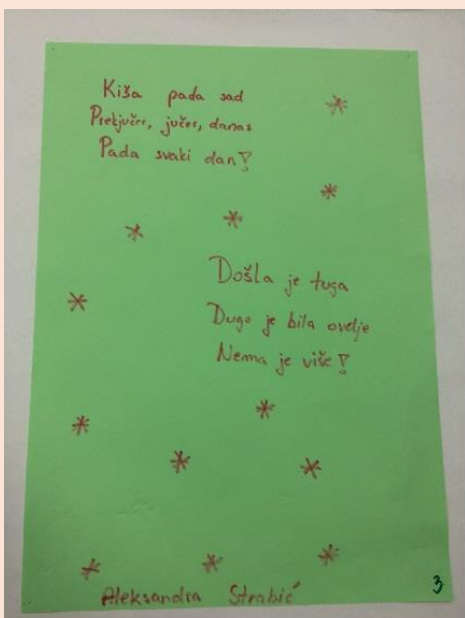 Kiša pada sad
Prekjučer, jučer, danas
Pada svaki dan!
Došla je tuga
Dugo je bila ovdje
Nema je više!
Aleksandra Strabić
3